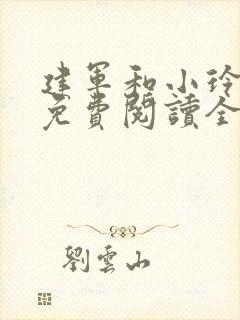 建軍和小玲
免費閱讀全
劉雲山